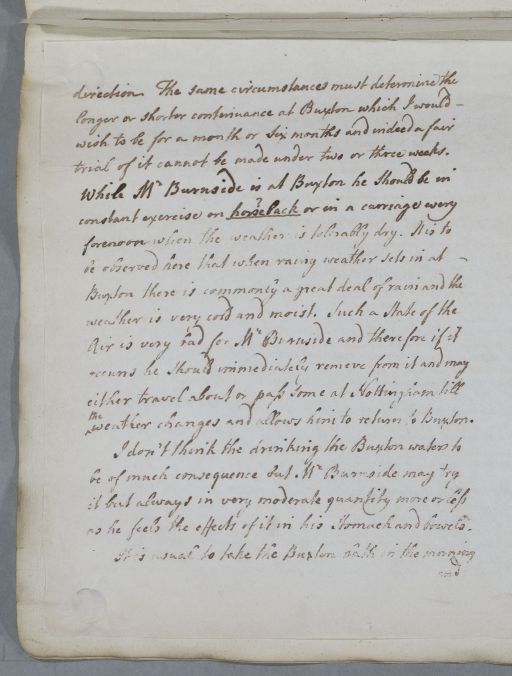 direction. The same circumstances must determine the
longer or shorter continuance at Buxton which I would
wish to be for a month or six months and indeed a fair
trial of it cannot be made under two or three weeks.
While Mr Burnside is at Buxton he should be in
constant exercise on horseback or in a carriage every
forenoon when the weather is tolerably dry. It is to
be observed here that when rainy weather sets in at
Buxton there is commonly a great deal of rain and the
weather is very cold and moist. Such a State of the
Air is very bad for Mr Burnside and therefore if it
occurs he should immediately remove from it and may
either travel about or pass some at Nottingham till
the weather changes and allows him to return to Buxton.
I don't think the drinking the Buxton waters to
be of much consequence but Mr Burnside may try
it but always in very moderate quantity more or less
as he feels the effects of it in his stomach and bowels.
It is usual to take the Buxton bath in the morning
and